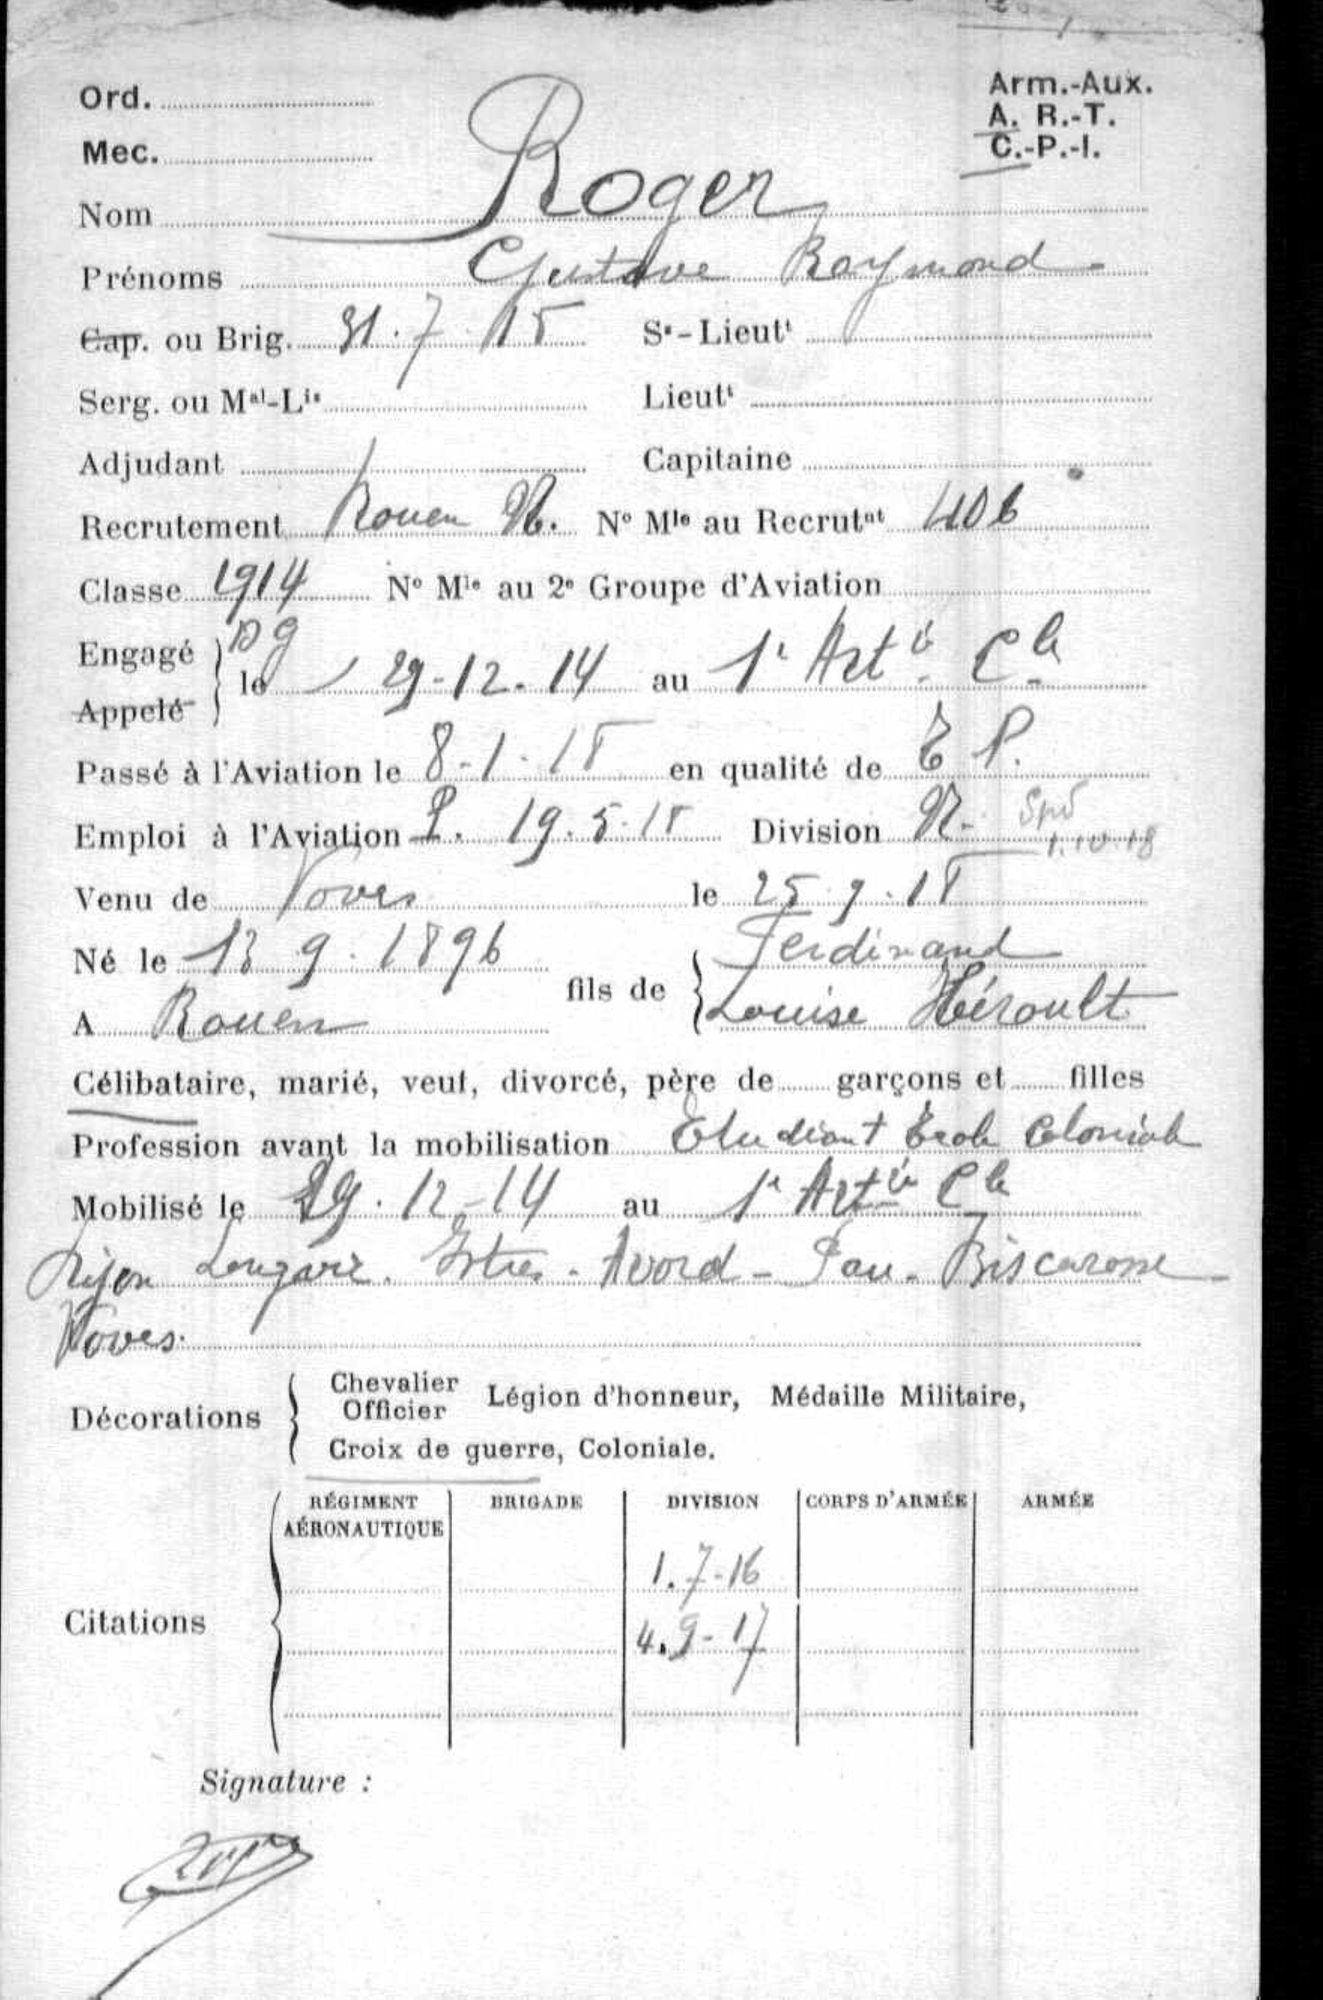 Arm.-Aux.
Ord.
A. R.-T.
Mec.
C.-P.-I.
Nom Roger
Prénoms Gustave Raymond
Cap. ou Brig. 31.7.15 Sˢ-Lieutᵗ
Serg. ou Mᵃˡ-Lⁱˢ Lieutᵗ
Adjudant Capitaine
Recrutement Rouen N. Nº Mˡᵉ au Recrutᵉⁿᵗ 406
Classe 1914 Nº Mˡᵉ au 2ᵉ Groupe d'Aviation
Engagé Dg
Appelé le 29-12-14 au 1ᵉ Artⁱᵉ Cˡᵉ
Passé à l'Aviation le 8-1-18 en qualité de E P.
Emploi à l'Aviation P. 19.5.18 Division N- Spd
1.10.18
Venu de Voves le 25.9.18
Né le 13 9.1896 fils de Ferdinand
A Rouen Louise Héroult
Célibataire, marié, veuf, divorcé, père de garçons et filles
Profession avant la mobilisation Etudiant Ecole Coloniale
Mobilisé le 29.12-14 au 1ᵉ Artⁱᵉ Cˡᵉ
Dijon Longvic. Istres - Avord - Pau - Biscarosse
Voves.
Décorations Chevalier Officier Légion d'honneur, Médaille Militaire,
Croix de guerre, Coloniale.
RÉGIMENT AÉRONAUTIQUE BRIGADE DIVISION CORPS D'ARMÉE ARMÉE
1.7-16
Citations
4.9-17
Signature :